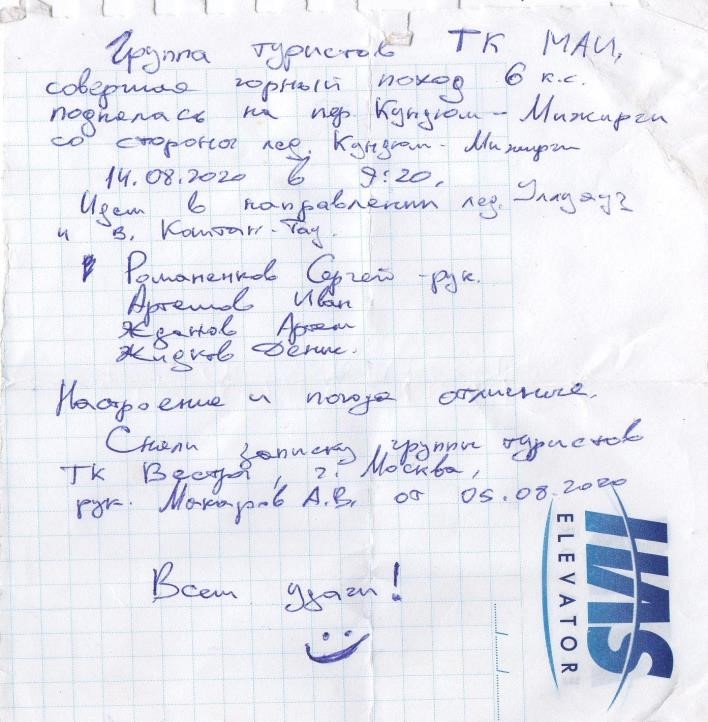 Группа туристов ТК МАИ,
совершая горный поход 6 к.с.
поднялась на пер. Кундюм-Мижирги
со стороны лед. Кундюм-Мижирги
14.08.2020 в 9:20.
Идем в направлении лед. Уллуауз
и в. Коштан-Тау.
Романенков Сергей -рук.
Артемов Иван
Жданов Артем
Жидков Денис.
Настроение и погода отличные.
Сняли записку группы туристов
ТК Вестра, г. Москва,
рук. Макаров А.В. от 05.08.2020
Всем удачи!
ELEVATOR